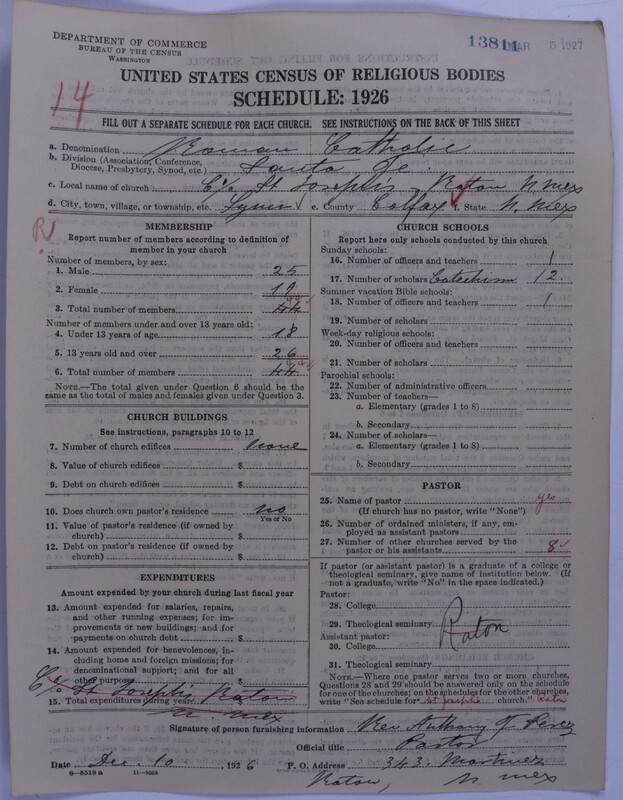 DEPARTMENT OF COMMERCE
BUREAU OF THE CENSUS
WASHINGTON
13814 MAR 5 1927
UNITED STATES CENSUS OF RELIGIOUS BODIES
SCHEDULE: 1926
14
FILL OUT A SEPARATE SCHEDULE FOR EACH CHURCH. SEE INSTRUCTIONS ON THE BACK OF THIS SHEET
a. Denomination Roman Catholic
b. Division (Association, Conference, Diocese, Presbytery, Synod, etc.) Santa Fe
c. Local name of church C/o St Joseph's Raton N. Mex
d. City, town, village, or township, etc. Lynn e. County Colfax f. State N. Mex
R
MEMBERSHIP
Report number of members according to definition of
member in your church
Number of members, by sex:
1. Male 25
2. Female 19
3. Total number of members 44
Number of members under and over 13 years old:
4. Under 13 years of age 18
5. 13 years old and over 26
6. Total number of members 44
NOTE.—The total given under Question 6 should be the
same as the total of males and females given under Question 3.
CHURCH BUILDINGS
See instructions, paragraphs 10 to 12
7. Number of church edifices None
8. Value of church edifices $
9. Debt on church edifices $
10. Does church own pastor's residence No
Yes or No
11. Value of pastor's residence (if owned by
church) $
12. Debt on pastor's residence (if owned by
church) $
EXPENDITURES
Amount expended by your church during last fiscal year
13. Amount expended for salaries, repairs,
and other running expenses; for im-
provements or new buildings; and for
payments on church debt $
14. Amount expended for benevolences, in-
cluding home and foreign missions; for
denominational support; and for all
other purposes $
C/o St Joseph's Raton
15. Total expenditures during year $
N. Mex
CHURCH SCHOOLS
Report here only schools conducted by this church
Sunday schools:
16. Number of officers and teachers 1
17. Number of scholars Catechism 12
Summer vacation Bible schools:
18. Number of officers and teachers 1
19. Number of scholars
Week-day religious schools:
20. Number of officers and teachers
21. Number of scholars
Parochial schools:
22. Number of administrative officers
23. Number of teachers—
a. Elementary (grades 1 to 8)
b. Secondary
24. Number of scholars—
a. Elementary (grades 1 to 8)
b. Secondary
PASTOR
25. Name of pastor yes
(If church has no pastor, write "None")
26. Number of ordained ministers, if any, em-
ployed as assistant pastors
27. Number of other churches served by the
pastor or his assistants 8
If pastor (or assistant pastor) is a graduate of a college or
theological seminary, give name of institution below. (If
not a graduate, write "No" in the space indicated.)
Pastor:
28. College
29. Theological seminary
Raton
Assistant pastor:
30. College
31. Theological seminary
NOTE.—Where one pastor serves two or more churches,
Questions 28 and 29 should be answered only on the schedule
for one of the churches; on the schedules for the other churches,
write "See schedule for St Joseph's church." Raton
Signature of person furnishing information Rev Anthony
Official title Pastor
Date Dec 10, 1926 P. O. Address 343 Martinez
Raton, N. Mex
8—5518a 11—9084